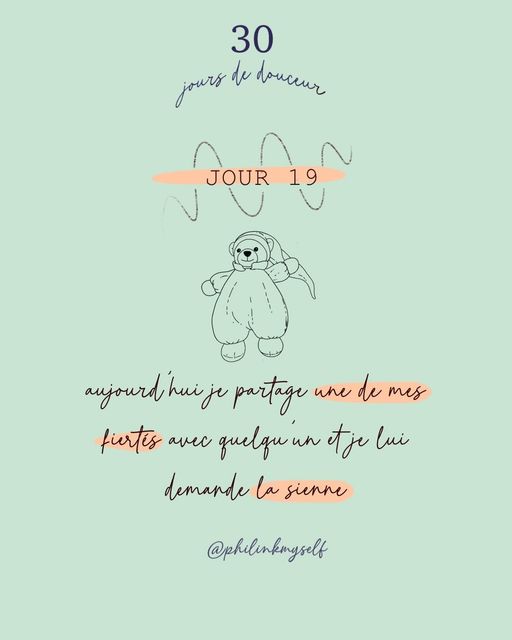 30
jours de douceur
JOUR 19
aujourd'hui je partage une de mes
fiertés avec quelqu'un et je lui
demande la sienne
@philinkmyself